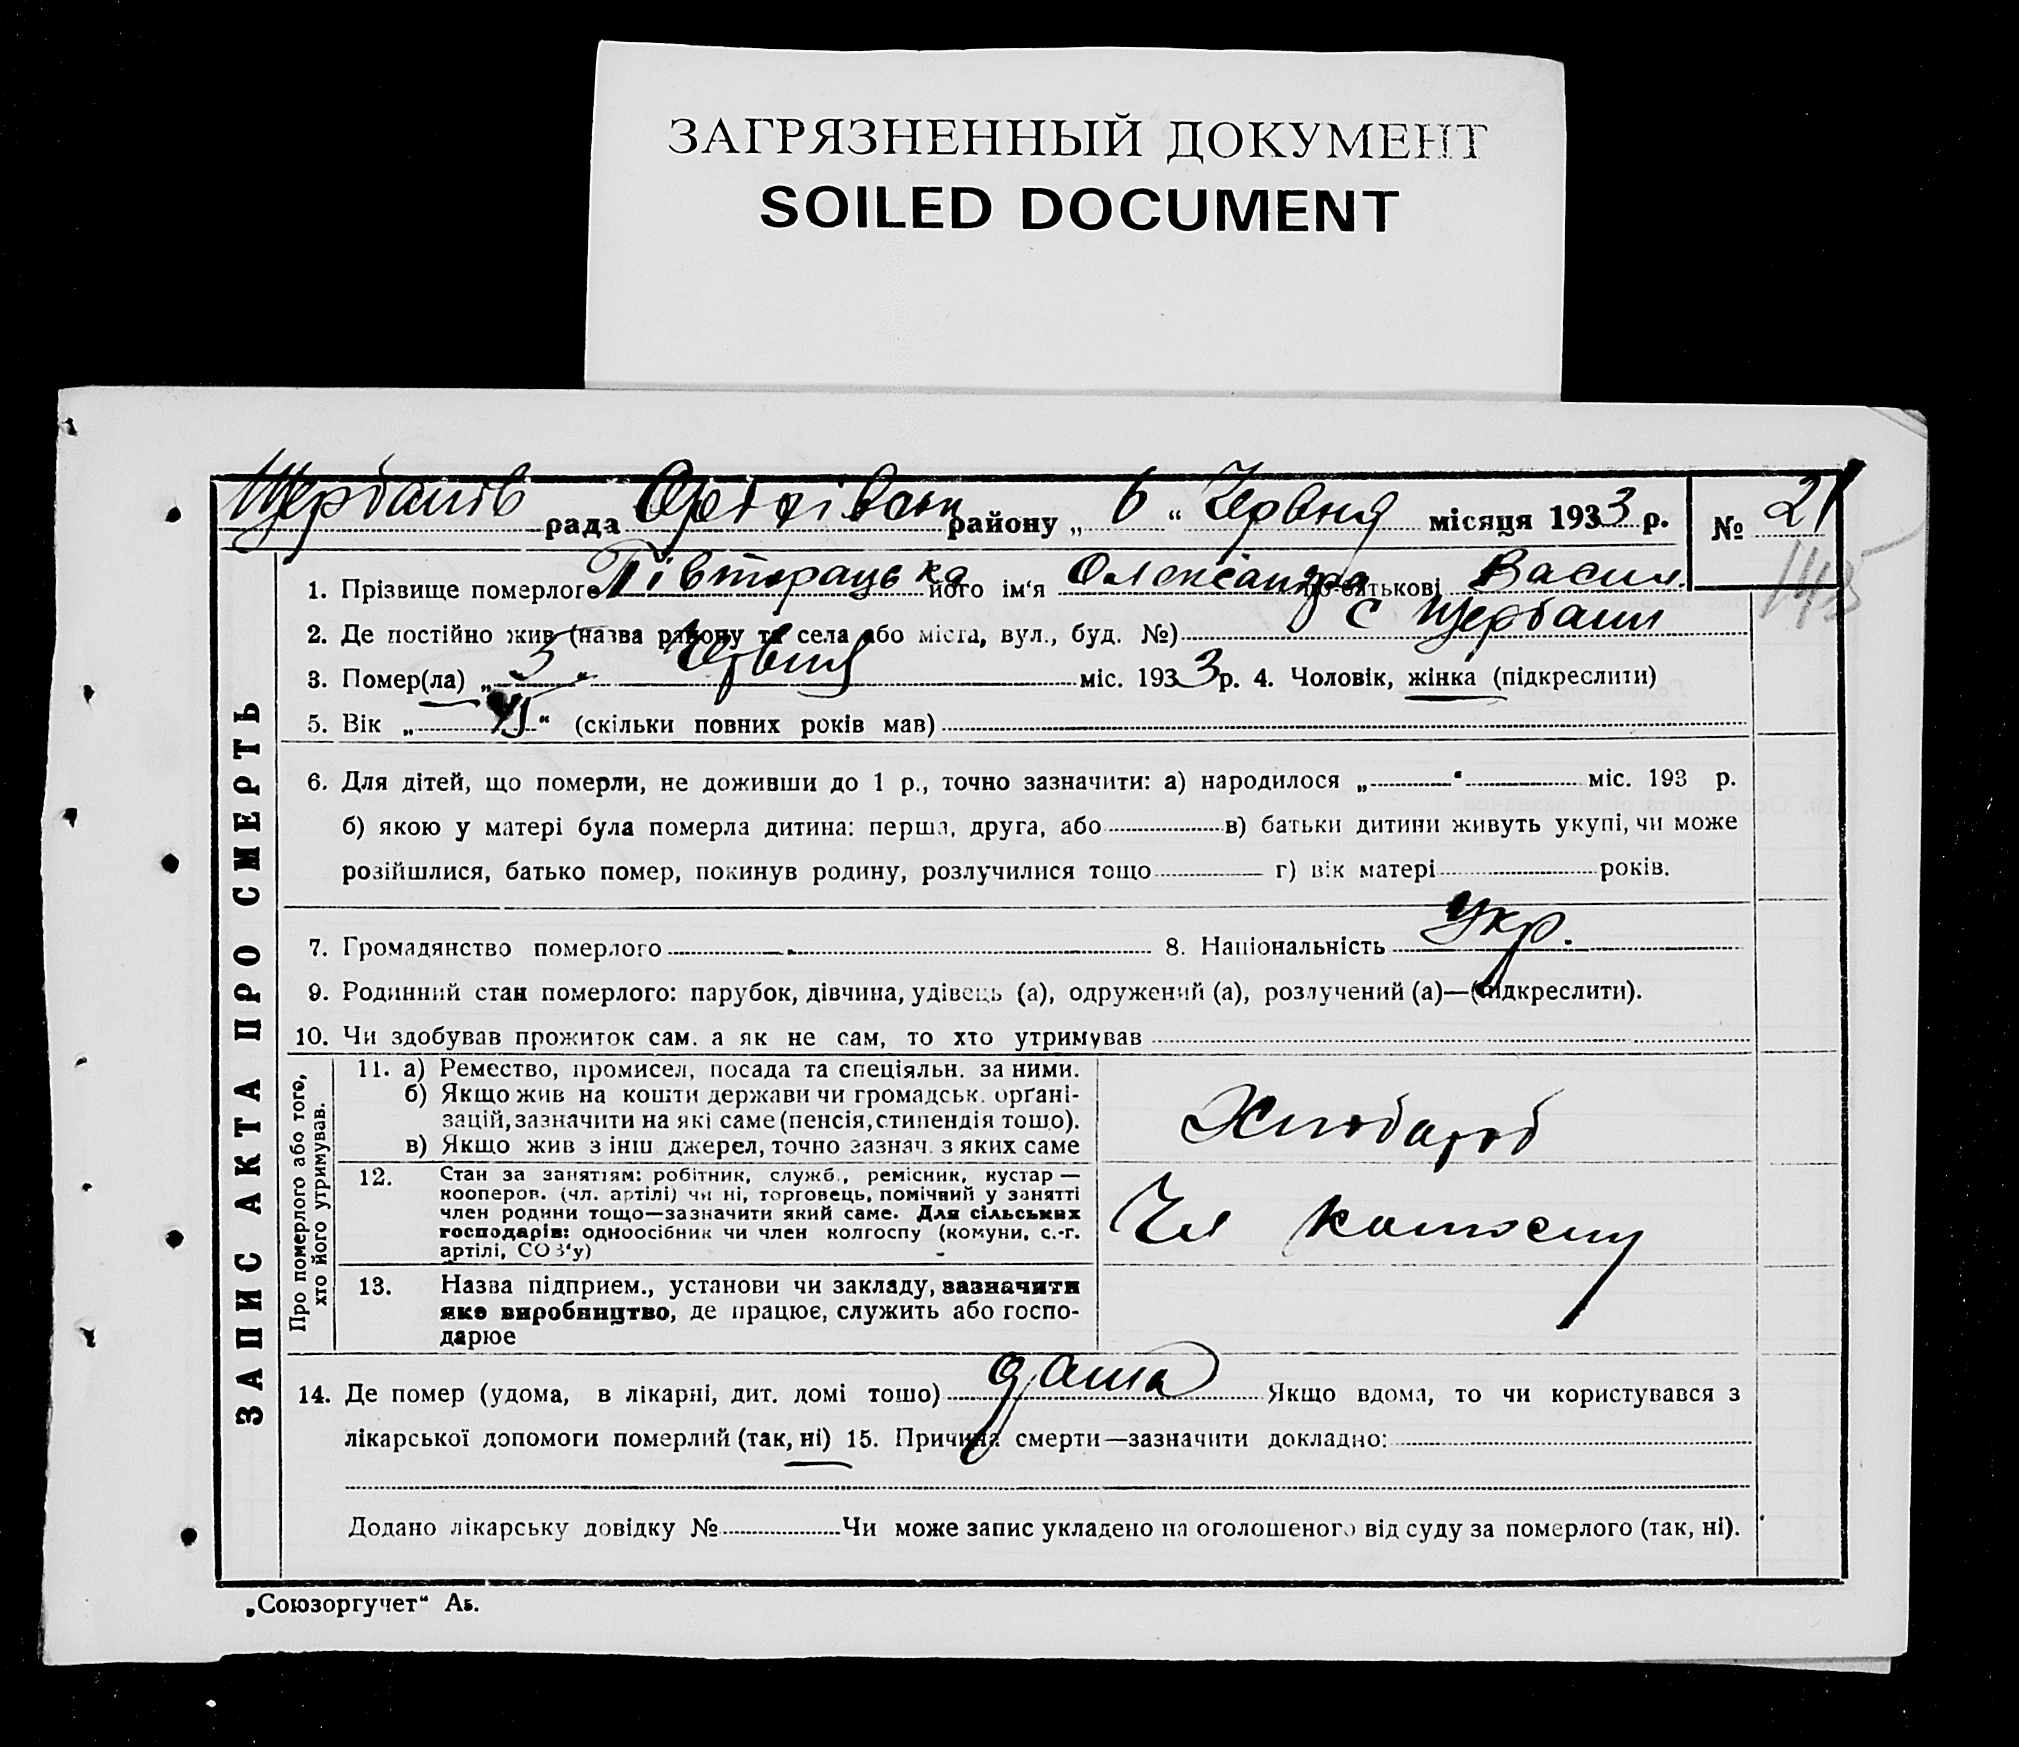 ЗАГРЯЗНЕННЫЙ ДОКУМЕНТ
SOILED DOCUMENT
рада району „ 6 “ Червня місяця 1933 р. № 21
145
1. Прізвище померлого Півторацька його ім‘я Олександра по-батькові Васил.
2. Де постійно жив (назва району та села або міста, вул., буд. №) с Щербані
3. Помер(ла) „ 3 “ Червня міс. 1933 р. 4. Чоловік, жінка (підкреслити)
5. Вік „ “ (скільки повних років мав)
6. Для дітей, що померли, не доживши до 1 р., точно зазначити: а) народилося „ “ міс. 193 р.
б) якою у матері була померла дитина: перша, друга, або в) батьки дитини живуть укупі, чи може
розійшлися, батько помер, покинув родину, розлучилися тощо г) вік матері років.
7. Громадянство померлого 8. Національність Укр.
9. Родинний стан померлого: парубок, дівчина, удівець (а), одружений (а), розлучений (а)—(підкреслити).
10. Чи здобував прожиток сам. а як не сам, то хто утримував
Про померлого або того,
хто його утримував.
11. а) Ремество, промисел, посада та спеціяльн. за ними.
б) Якщо жив на кошти держави чи громадськ. орґані-
зацій, зазначити на які саме (пенсія, стипендія тощо).
в) Якщо жив з інш джерел, точно зазнач. з яких саме
Хлібороб
12. Стан за заняттям: робітник, служб., ремісник, кустар —
кооперов. (чл. артілі) чи ні, торговець, помічний у занятті
член родини тощо—зазначити який саме. Для сільських
господарів: одноосібник чи член колгоспу (комуни, с.-г.
артілі, СОЗ‘у)
Чл колгоспу
13. Назва підприєм., установи чи закладу, зазначити
яке виробництво, де працює, служить або госпо-
дарює
14. Де помер (удома, в лікарні, дит. домі тощо) дома Якщо вдома, то чи користувався з
лікарської допомоги померлий (так, ні) 15. Причина смерти—зазначити докладно:
Додано лікарську довідку № Чи може запис укладено на оголошеного від суду за померлого (так, ні).
ЗАПИС АКТА ПРО СМЕРТЬ
„Союзоргучет“ Аб.